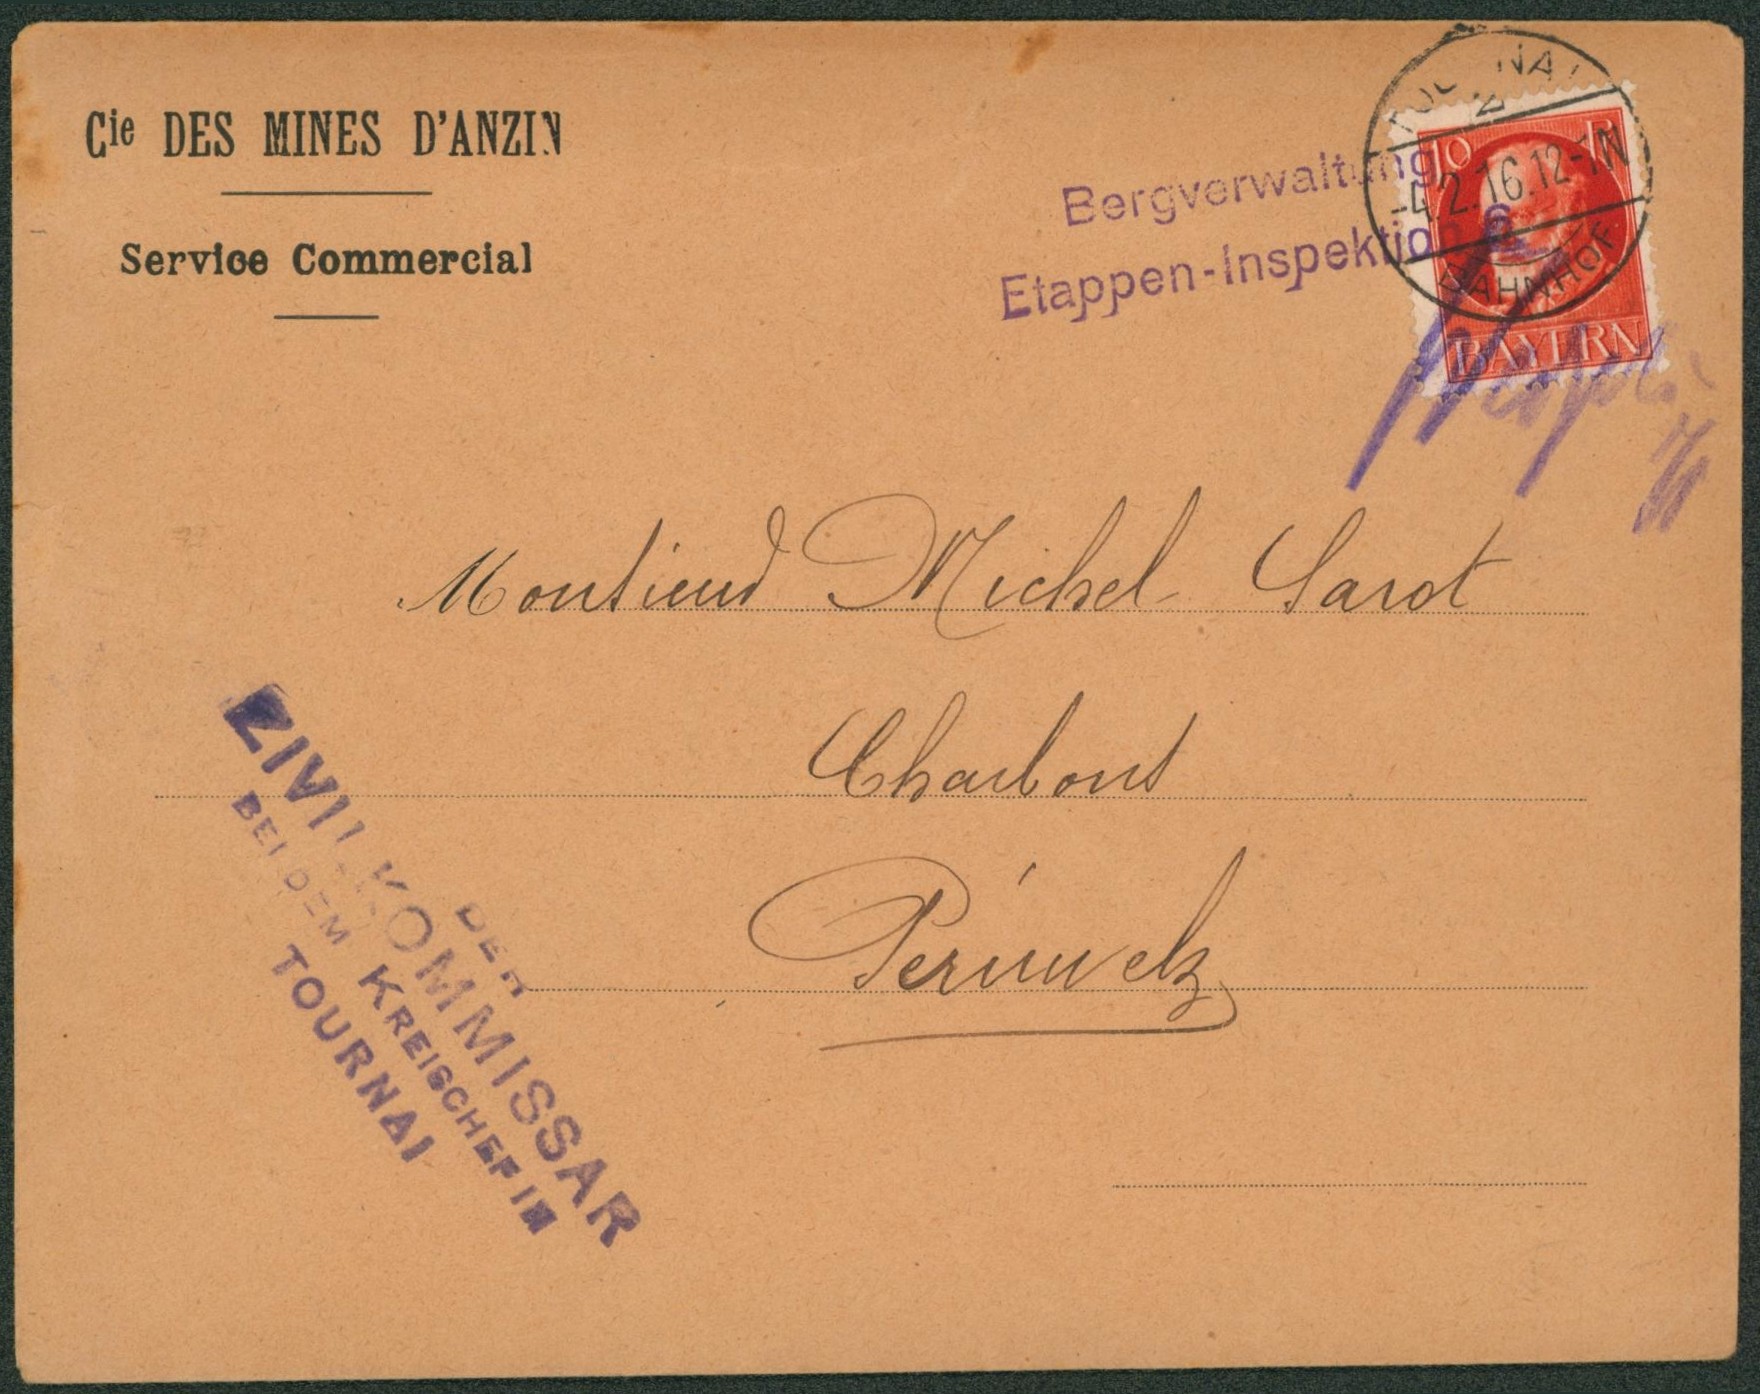 Cie DES MINES D'ANZIN
Service Commercial
Bergverwaltung
Etappen-Inspektion 6
TOURNAI
2
-4.2.16.12-1N
BAHNHOF
10 P
BAYERN
Monsieur Michel Sarot
Charbons
Péruwelz
DER
ZIVILKOMMISSAR
BEI DEM KREISCHEF IN
TOURNAI